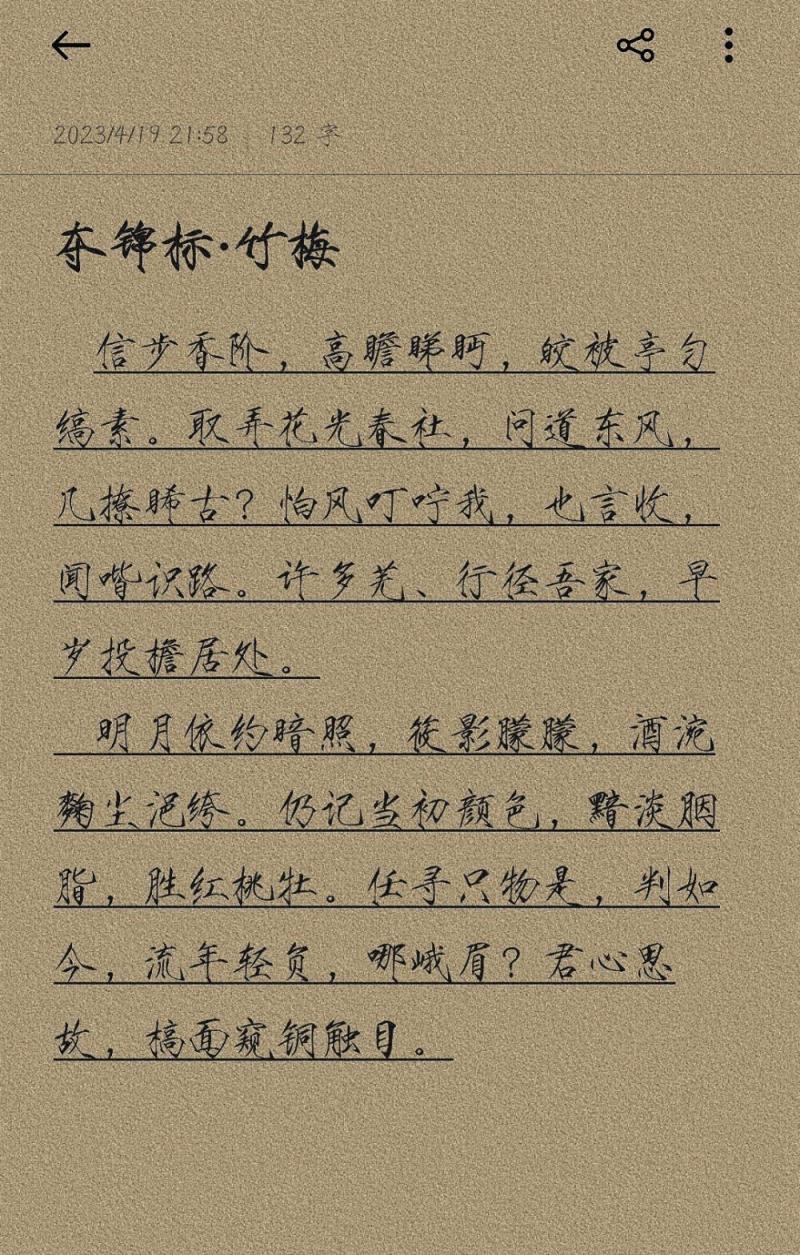 2023/4/19 21:58 132 字
夺锦标·竹梅
信步香阶，高瞻睇眄，皎被亭匀
缟素。取弄花光春社，问道东风，
几撩睎古？怕风叮咛我，也言收，
闻喈识路。许多芜、行径吾家，早
岁投檐居处。
明月依约暗照，筱影朦朦，酒涴
麴尘浥绔。仍记当初颜色，黯淡胭
脂，胜红桃牡。任寻只物是，判如
今，流年轻负，哪峨眉？君心思
故，槁面窥铜触目。